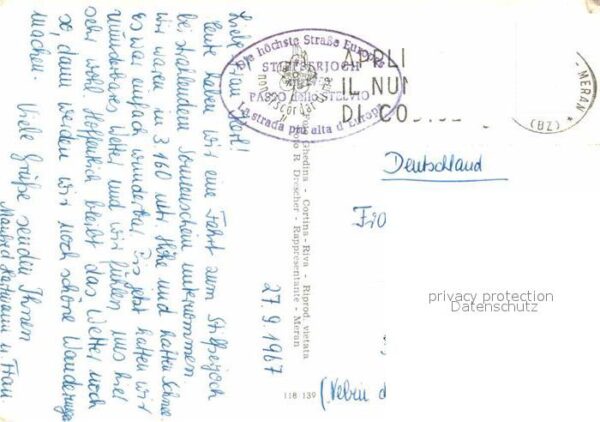 27.9.1967
Liebe Frau
heute haben wir eine Fahrt zum Stilfserjoch
bei strahlendem Sonnenschein unternommen.
Wir waren in 3 160 mtr. Höhe und hatten Schnee.
Es war einfach wunderbar. Bis jetzt hatten wir
wunderbares Wetter und wir fühlen uns hier
sehr wohl. Hoffentlich bleibt das Wetter noch
so, dann werden wir noch schöne Wanderungen
machen. Viele Grüße senden Ihnen
Manfred Hartmann u. Frau.
Die höchste Straße Europas
STILFSERJOCH
PASSO dello STELVIO
La strada più alta d'Europa
non scordar di me
APRI
IL NUM
DI COD
- MERAN *
(BZ)
Ghedina - Cortina - Riva - Riprod. vietata
R. Drescher - Rappresentante - Meran
118 139
Deutschland
privacy protection
Datenschutz